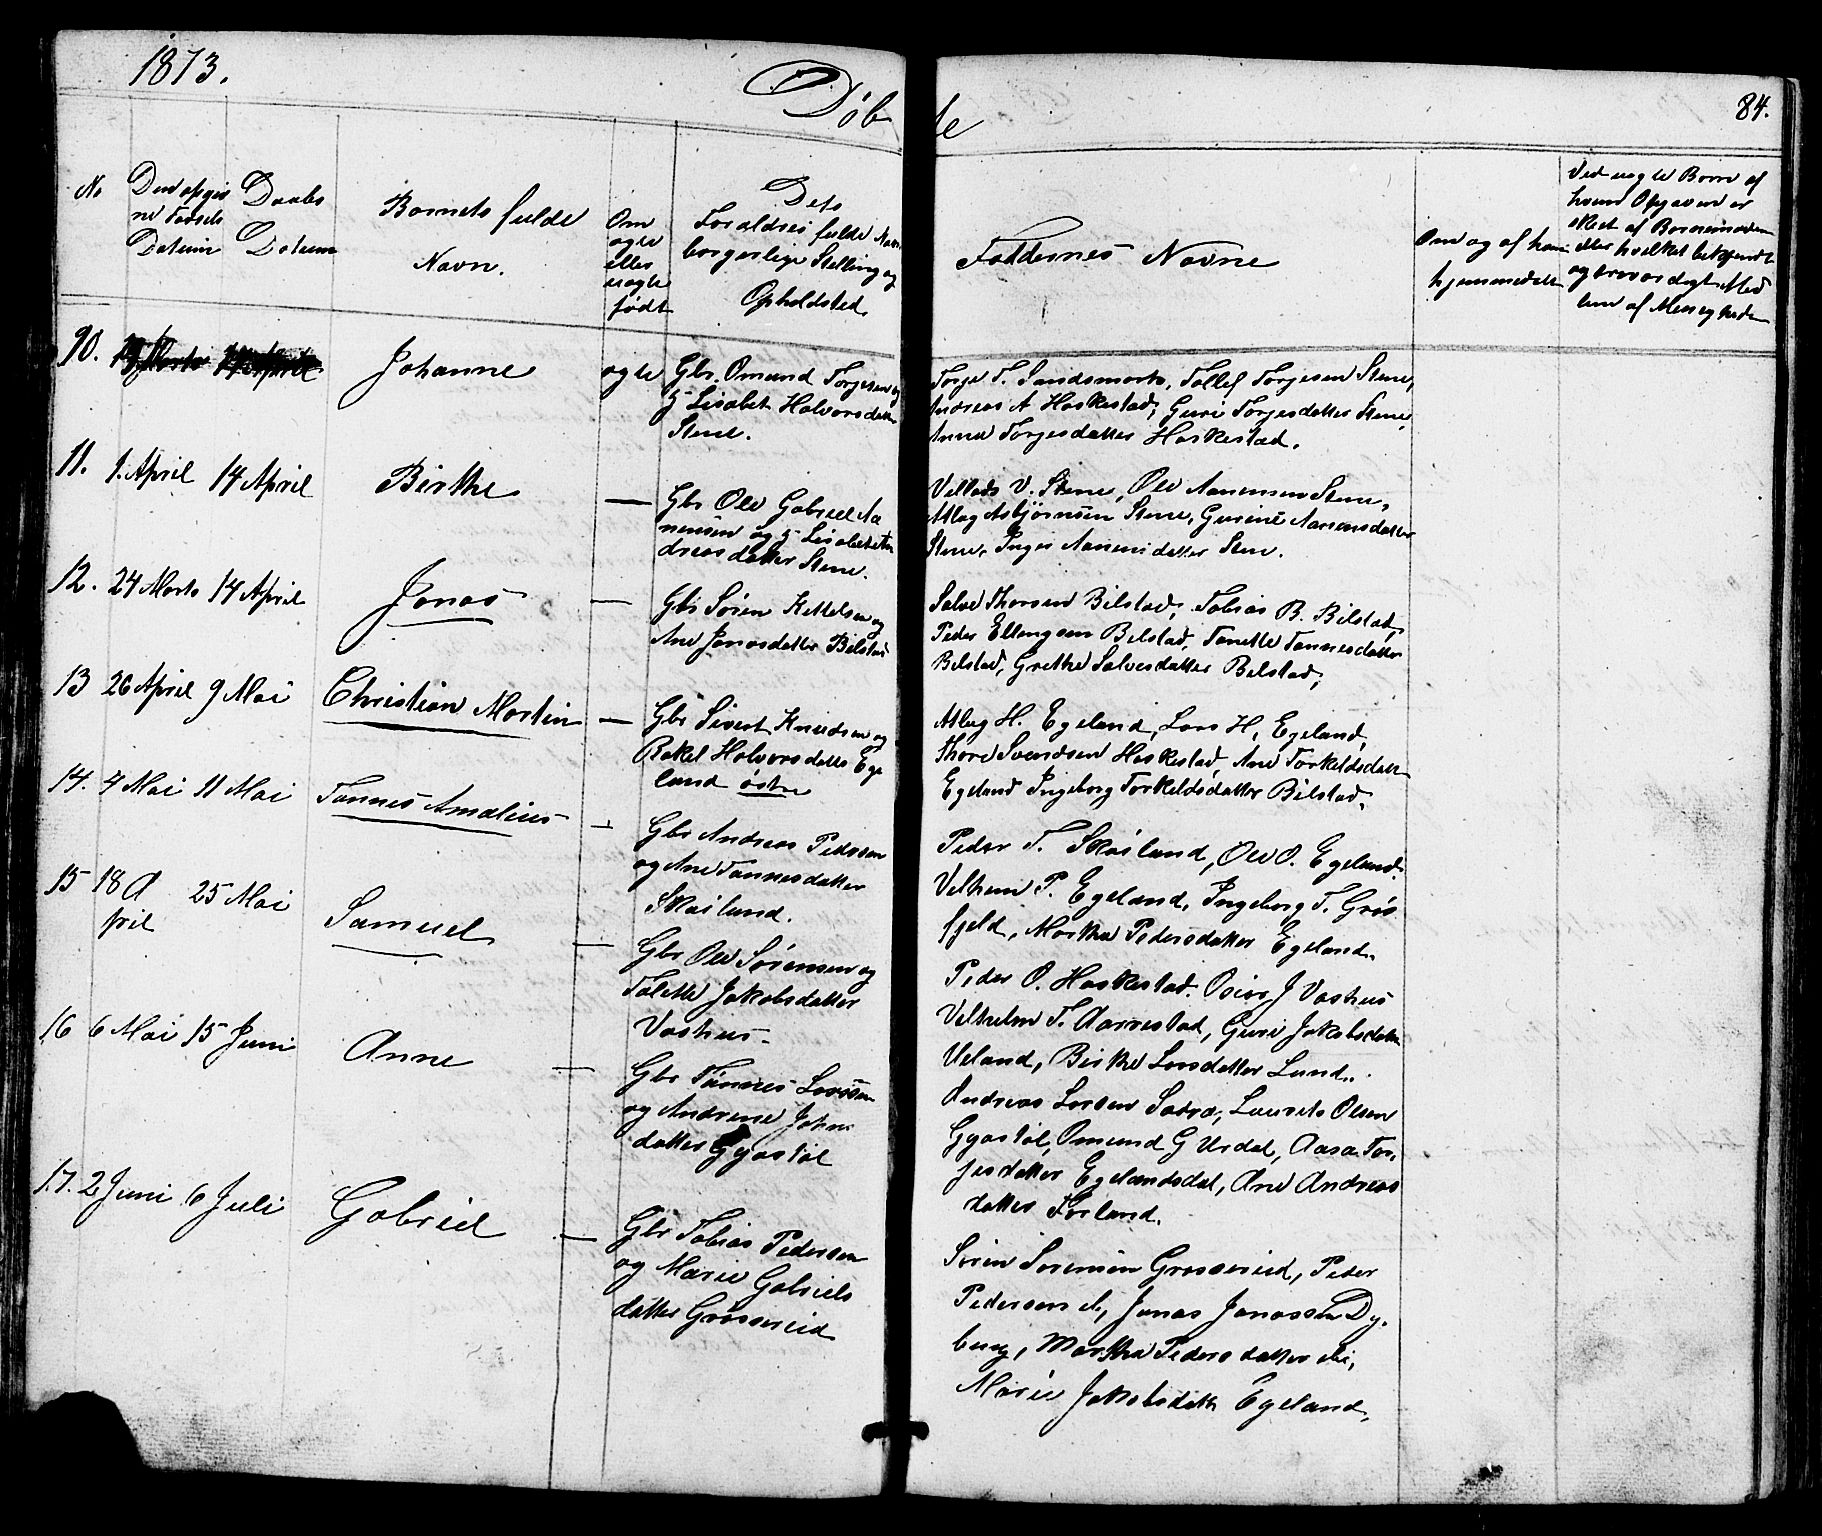 1873.
Døbte
84.
No
Den opgiv
ne Fødsels
Datum
Daabs
Datum
Barnets fulde
Navn.
Om
ægte
eller
uægte
født
Dets
Forældres fulde Navn
borgerlige Stelling og
Opholdsted
Faddernes Navne
Om og af hvem
hjemmedøbt
Ved uægte Børn af
hvem Opgaven er
skeet af Barnemoderen
eller hvilket bekjendt
og troværdigt Med
lem af Menigheden
90.
Johanne
ægte
Gbr. Omund Torjesen og
Lisabet Halvorsdatter
Stene.
Torge T. Sandsmark, Tollef Torjesen Stene,
Andreas A Haskestad, Guri Torjesdatter Stene,
Anna Torjesdatter Haskestad.
11.
1. April
14 April
Birthe
—
Gbr Ole Gabriel Aa
nensen og Lisabet An
dreas datter Stene.
V. Stene, Ole Aanensen Stene,
Atlag Asbjørnsen Stene, Gurine Aanensdatter
Stene, Inger Aanensdatter Stene.
12.
24 Marts
14 April
Jonas
—
Gbr Sören Kittelsen og
Ane Jonasdatter Bilstad
Salve Thorsen Bilstad, Tobias B. Bilstad,
Peder Ellingsen Bilstad, Tonette Tonnesdatter
Bilstad, Grethe Salvesdatter Bilstad,
13
26 April
9 Mai
Christian Martin
—
Gbr Sivert Knudsen og
Rakel Halvorsdatter Ege
land østre
Atlag H. Egeland, Lars H. Egeland,
Thore Svendsen Haskestad, Ane Torkeldsdatter
Egeland Ingeborg Torkeldsdatter Bilstad.
14.
4 Mai
11 Mai
Tønnes Amalius
—
Gbr Andreas Pedersen
og Ane Tønnesdatter
Skailand.
Peder T. Skailand, Ole O. Egeland.
Velhem P. Egeland, Ingeborg T. Grøs
fjeld, Martha Pedersdatter Egeland.
15
18 A
pril
25 Mai
Samuel
—
Gbr Ole Sørensen og
Talette Jakobsdatter
Vashus
Peder O. Haskestad. Osias J Vashus
Velhelm T. Aarrestad, Guri Jakobsdatter
Ueland, Birthe Larsdatter Lund.
16
6 Mai
15 Juni
Anne
—
Gbr Tønnes Larssen
og Andrene Johns
datter Gyastøl
Andreas Larsen Sætra, Laurits Olsen
Gyastøl, Omund G Urdal, Aasa Tor,
jesdatter Egelandsdal, Ane Andreas
datter Førland.
17.
2 Juni
6 Juli
Gabriel
—
Gbr Tobias Pedersen
og Marie Gabriels
datter Grøssereid
Sørin Sørensen Grøssereid, Peder
Pedersen ib, Jonas Jonassen Dy.
bing, Martha Pedersdatter ib,
Marie Jakobsdatter Egeland,